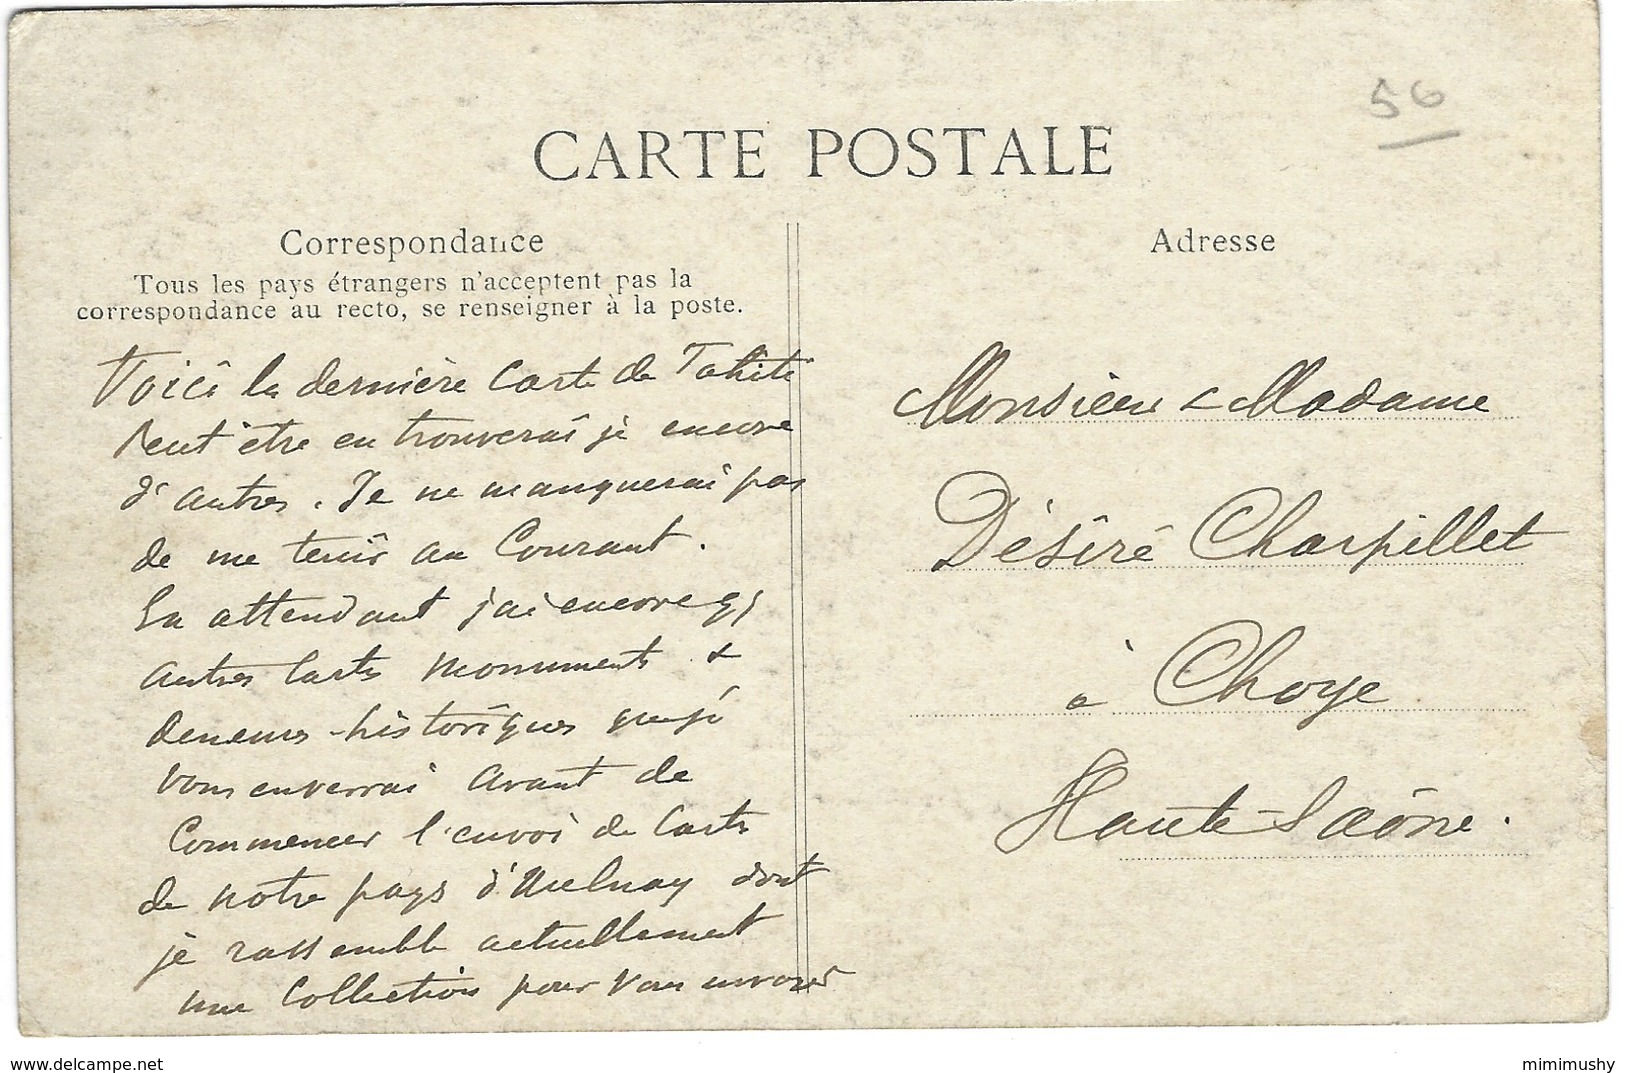 56
CARTE POSTALE
Correspondance
Tous les pays étrangers n'acceptent pas la
correspondance au recto, se renseigner à la poste.
Voici la dernière Carte de Tahiti
Peut être en trouverai je encore
d'autres. Je ne manquerai pas
de me tenir au Courant.
En attendant j'ai encore qq
autres Cartes monuments &
demeures historiques que je
vous enverrai avant de
Commencer l'envoi de Cartes
de notre pays d'Aulnay dont
je rassemble actuellement
une Collection pour vous envoyer
Adresse
Monsieur & Madame
Désiré Charpillet
à Choye
Haute-Saône.
delcampe.net
mimimushy